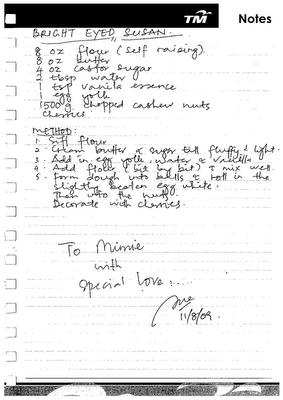 TM Notes
BRIGHT EYED SUSAN
8 oz flour (self raising)
8 oz butter
4 oz castor sugar
2 tbsp water
1 tsp vanilla essence
1 egg yolk
1500 g chopped cashew nuts
Cherries
METHOD:
1. Sift flour
2. Cream butter & sugar till fluffy & light.
3. Add in egg yolk, water & vanilla
4. Add flour (bit by bit) & mix well.
5. Form dough into balls & roll in the
slightly beaten egg white.
Then into the nuts
Decorate with cherries.
To Minnie
with
special love.....
11/8/09.